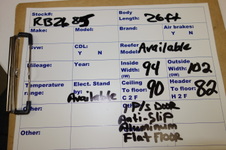 Stock#: RB26285 Body Length: 26ft
Make: Model: Brand: Air brakes? Y N
GVW: CDL? Y N Reefer Model: Available
Mileage: Year: Inside Width: 99 Outside Width: 102
Temperature range: Elect. Stand by: Available Ceiling To floor: 90 Header To Floor: 82
Other: 9" P/S Door
Anti-Slip
Other: Aluminum
Flat Floor